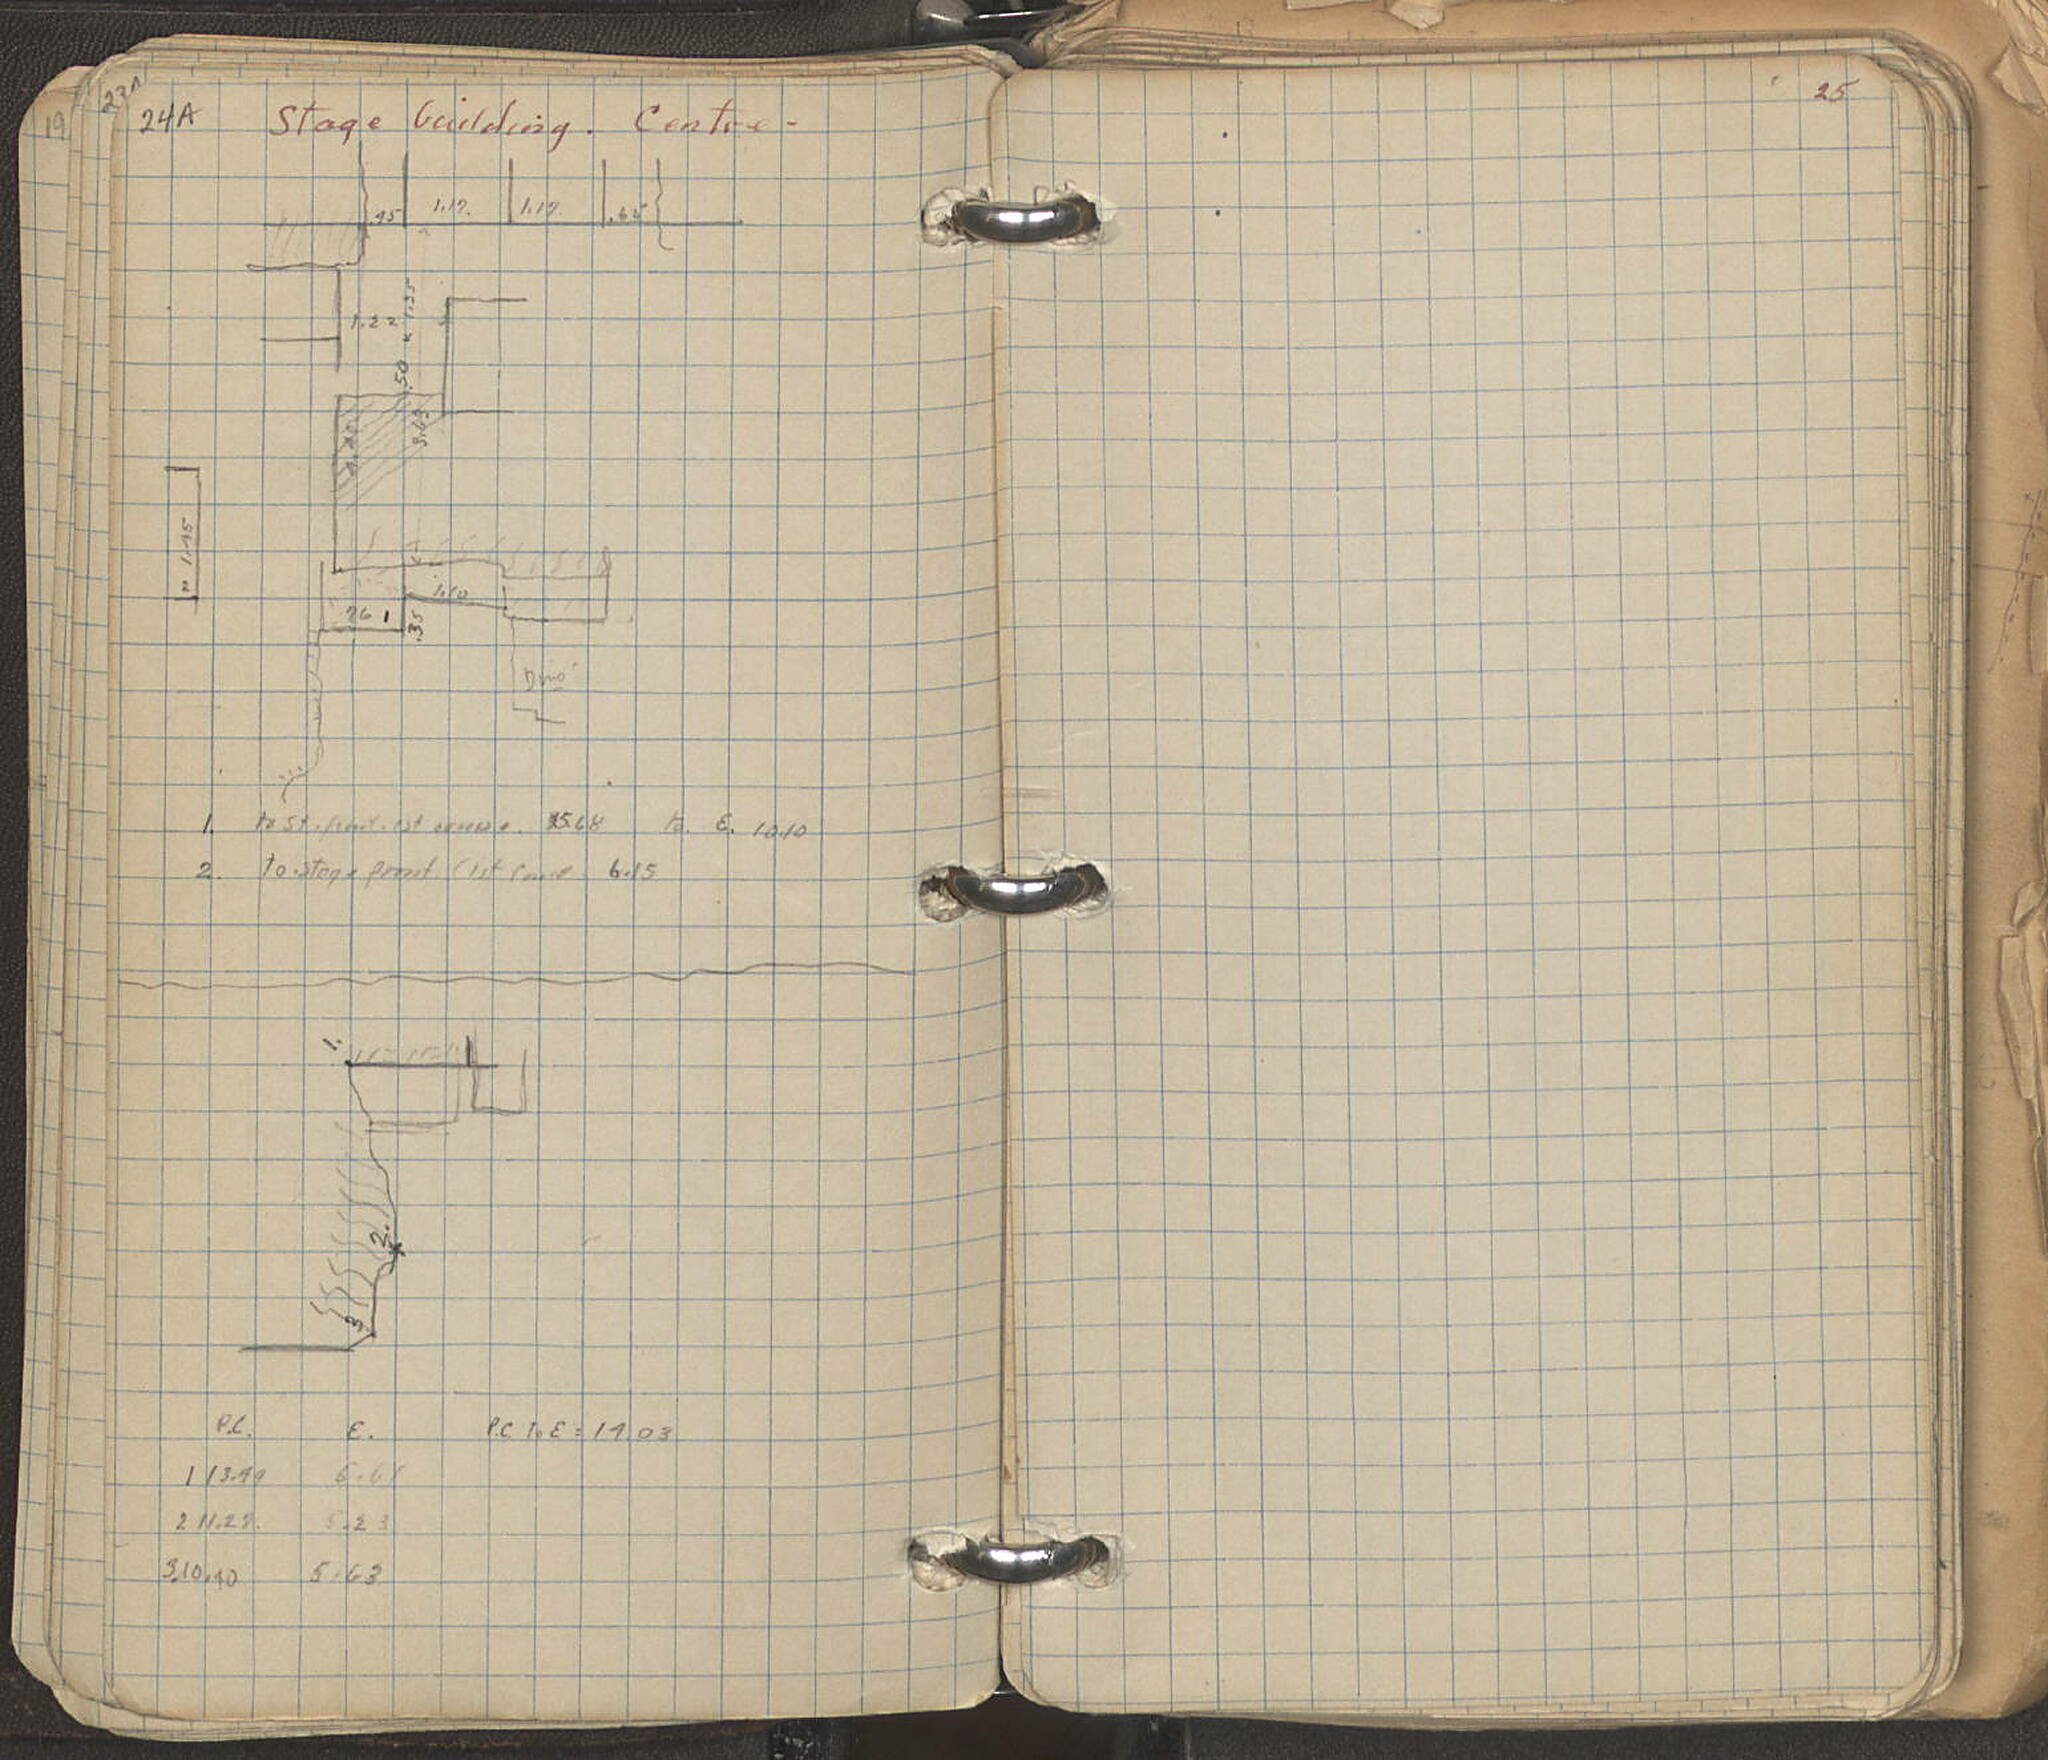 19
23A
24A Stage building. Centre -
25
1.17. 1.17 .65
1.22
1.35
.50
3.63
1.45
1.10
.35
1. to St. front. 1st course. 15.68 to E. 10.10
2. to stage front (1st course 6.15
1.
2.
3
P.C. E. P.C. to E = 19.03
1 13.49
2 11.29. 5.23
3. 10.40 5.63